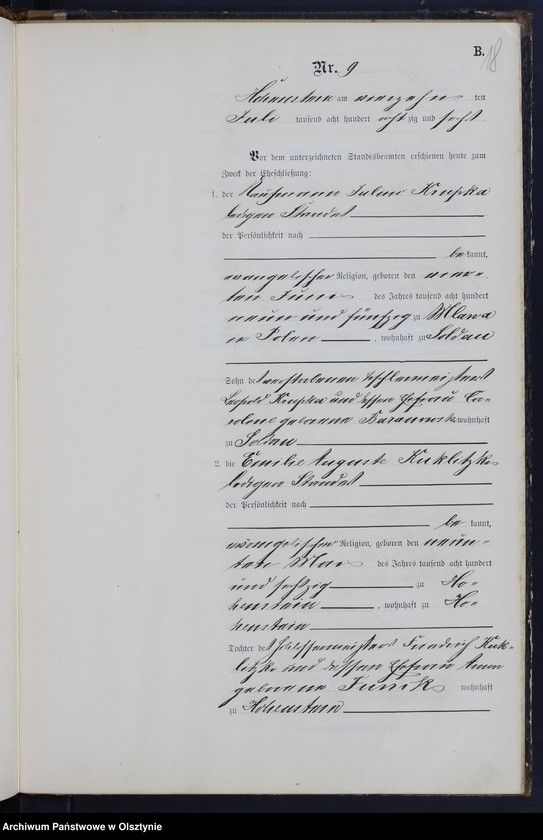 B.
18
Nr. 9
Hohenstein am vierzehn ten
Juli tausend acht hundert achtzig und sechs
Vor dem unterzeichneten Standesbeamten erschienen heute zum
Zweck der Eheschließung:
1. der Kaufmann Julius Krupka
ledigen Standes
der Persönlichkeit nach
be kannt,
evangelischer Religion, geboren den
ten Juni des Jahres tausend acht hundert
neun und fünfzig zu Mlawa
in Polen, wohnhaft zu Soldau
Sohn des verstorbenen
Leopold Krupka und dessen Ehefrau Ca-
roline geborene wohnhaft
zu Soldau
2. die Emilie Auguste Kuklitzki
ledigen Standes
der Persönlichkeit nach
be kannt,
evangelischer Religion, geboren den neun-
ten Mai des Jahres tausend acht hundert
und sechzig zu Ho-
henstein, wohnhaft zu Ho-
henstein
Tochter des Friedrich Kuk-
litzki und dessen Ehefrau Anna
geborene wohnhaft
zu Hohenstein
Archiwum Państwowe w Olsztynie